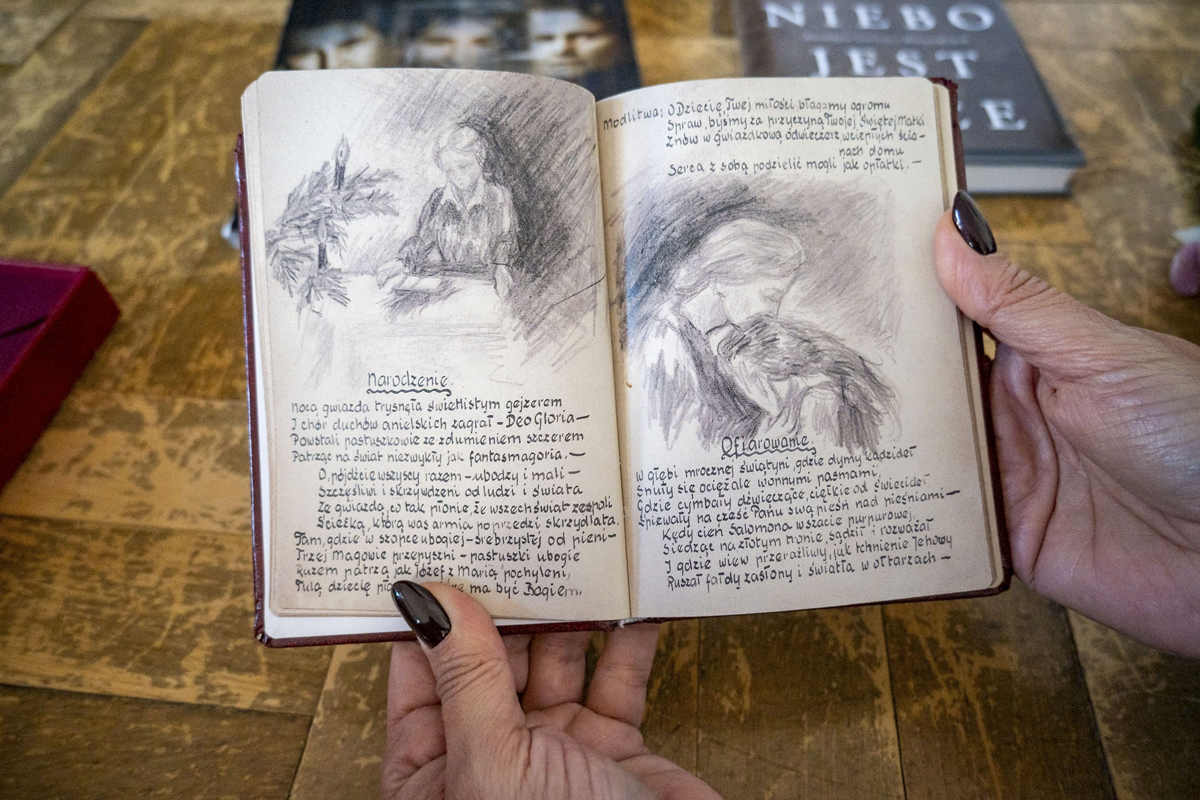 NIEBO
JEST
Narodzenie.
Nocą gwiazda trysnęła świetlistym gejzerem
I chór duchów anielskich zagrał – Deo Gloria –
Powstali pastuszkowie ze zdumieniem szczerem
Patrząc na świat niezwykły jak fantasmagoria. –
O, pójdźcie wszyscy razem – ubodzy i mali –
Szczęśliwi i skrzywdzeni od ludzi i świata
Ze gwiazdą, co tak płonie, że wszechświat zespoli
Ścieżką, którą was armia poprzedzi skrzydlata.
Tam, gdzie w szopce ubogiej – srebrzystej od pieni –
Trzej Magowie przepyszni – pastuszki ubogie
Razem patrzą jak Józef z Marią pochyleni,
Tulą dziecię ma być Bogiem.
Modlitwa: O Dziecię, Twej miłości błagamy ogromu
Spraw, byśmy za przyczyną Twojej Świętej Matki
Znów w gwiazdkową odwieczerz w ciepłych ścia-
nach domu
Serca z sobą podzielić mogli jak opłatki. –
Ofiarowanie.
W głębi mrocznej świątyni, gdzie dymy kadzideł
Snuły się ociężale wonnymi pasmami,
Gdzie cymbały dźwięczące, ciężkie od świecideł
Śpiewały na cześć Panu swą pieśń nad pieśniami –
Kędy cień Salomona w szacie purpurowej,
Siedząc na złotym tronie, sądził i rozważał
I gdzie wiew przeraźliwy, jak tchnienie Jehowy
Ruszał fałdy zasłony i światła w ołtarzach –